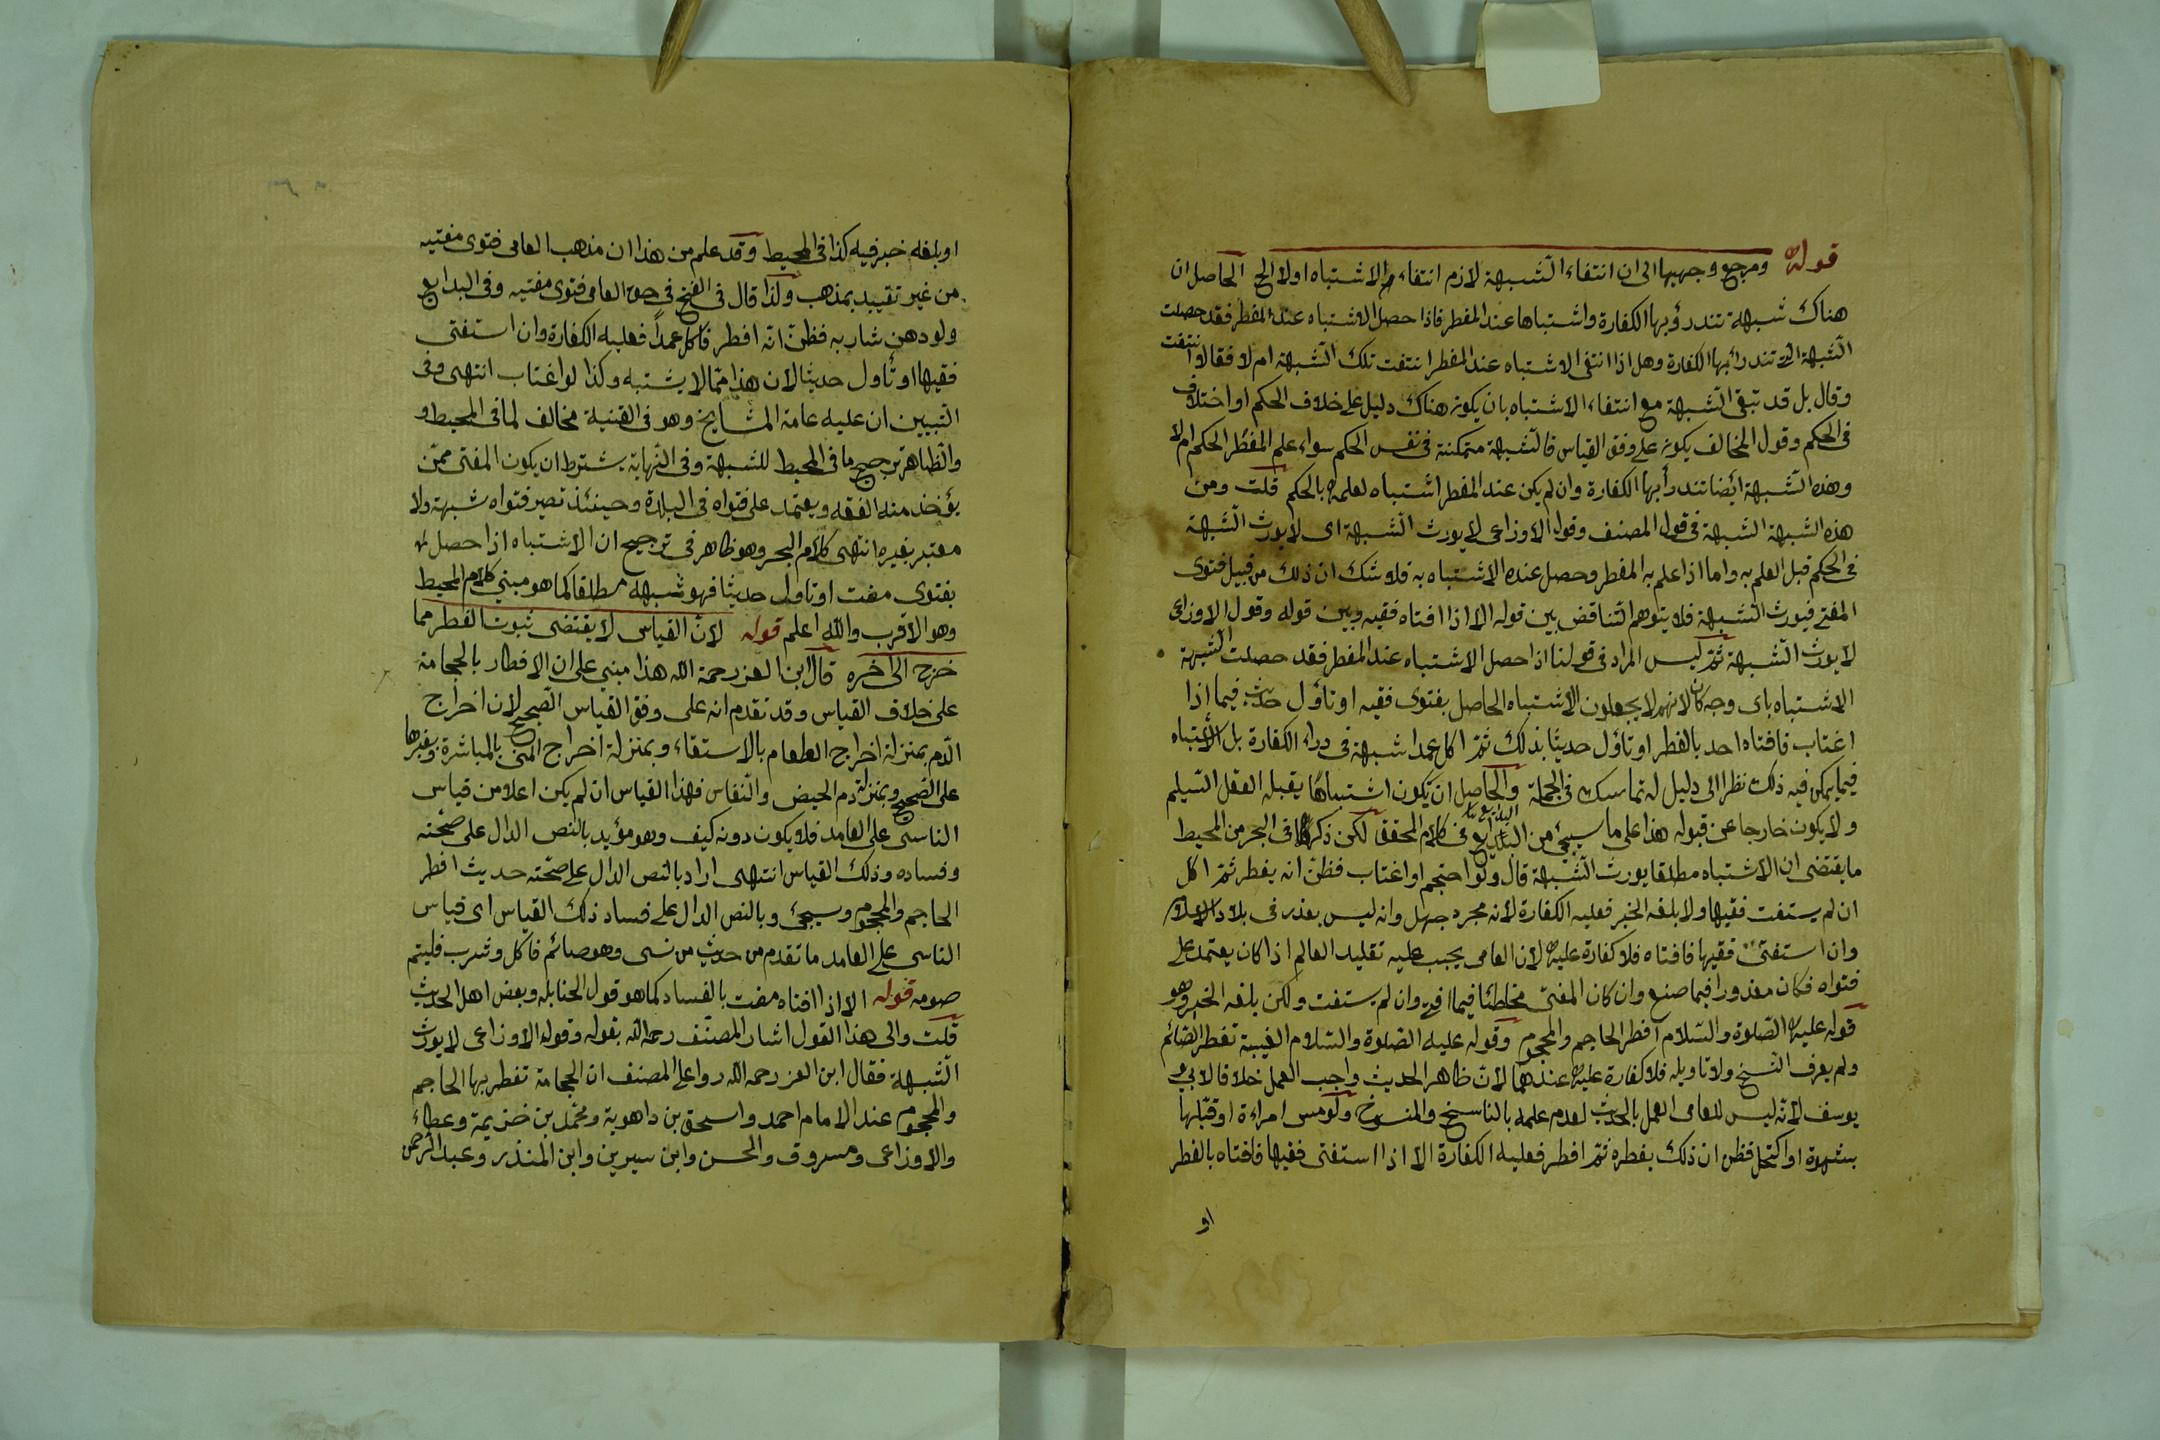 قوله ومرجع وجهيها الى ان انتفاء الشبهة لازم انتفاء الاشتباه اولا الخ الحاصل ان
هناك شبهة تندرؤ بها الكفارة واشتباها عند المفطر فاذا حصل الاشتباه عند المفطر فقد حصلت
الشبهة التى تندرأ بها الكفارة وهل اذا انتفى الاشتباه عند المفطر انتفت تلك الشبهة ام لا فقالا انتفت
وقال بل قد تبقى الشبهة مع انتفاء الاشتباه بان يكون هناك دليل على خلاف الحكم او اختلاف
فى الحكم وقول المخالف يكون على وفق القياس فالشبهة متمكنة فى نفس الحكم سواء علم المفطر الحكم ام لا
وهذه الشبهة ايضا تندرأ بها الكفارة وان لم يكن عند المفطر اشتباه لعلمه بالحكم قلت ومن
هذه الشبهة الشبهة فى قول المصنف وقول الاوزاعى لا يورث الشبهة اى لا يورث الشبهة
فى الحكم قبل العلم به واما اذا علم به المفطر وحصل عنده الاشتباه به فلا شك ان ذلك من قبيل فتوى
المفتى فيورث الشبهة فلا يتوهم التناقض بين قوله الا اذا افتاه فقيه وبين قوله وقول الاوزاعى
لا يورث الشبهة ثم ليس المراد فى قولنا اذا حصل الاشتباه عند المفطر فقد حصلت الشبهة
الاشتباه باى وجه كان لانهم لا يجعلون الاشتباه الحاصل بفتوى فقيه او تاؤل حديث فيما اذا
اغتاب فافتاه احد بالفطر او تاؤل حديثا بذلك ثم اكل عمدا شبهة فى درء الكفارة بل الاشتباه
فيما يمكن فيه ذلك نظرا الى دليل له تماسك فى الجملة والحاصل ان يكون اشتباها يقبله العقل السليم
ولا يكون خارجا عن قبوله هذا على ما سيجئ من البدايع فى كلام المحقق لكن ذكر فى البحر من المحيط
ما يقتضى ان الاشتباه مطلقا يورث الشبهة قال ولو احتجم او اغتاب فظن انه يفطر ثم اكل
ان لم يستفت فقيها ولا بلغه الخبر فعليه الكفارة لانه مجرد جهل وانه ليس بعذر فى بلاد الاسلام
وان استفتى فقيها فافتاه فلا كفارة عليه لان العامى يجب عليه تقليد العالم اذا كان يعتمد على
فتواه فكان معذورا فيما صنع وان كان المفتى مخطئا فيما افتى وان لم يستفت ولكن بلغه الخبر وهو
قوله عليه الصلوة والسلام افطر الحاجم والمحجوم وقوله عليه الصلوة والسلام الغيبة تفطر الصائم
ولم يعرف النسخ ولا تاويله فلا كفارة عليه عندهما لان ظاهر الحديث واجب العمل خلافا لابى
يوسف لانه ليس للعامى العمل بالحديث لعدم علمه بالناسخ والمنسوخ ولو مس امراءة او قبلها
بشهوة او اكتحل فظن ان ذلك يفطره ثم افطر فعليه الكفارة الا اذا استفتى فقيها فافتاه بالفطر
او
او بلغه خبر فيه كذا فى المحيط وقد علم من هذا ان مذهب العامى فتوى مفتيه
من غير تقييد بمذهب ولذا قال فى الفتح فى حق العامى فتوى مفتيه وفى البدايع
ولو دهن شاربه فظن انه افطر فاكل عمدا فعليه الكفارة وان استفتى
فقيها او تأول حديثا لان هذا مما لا يشتبه وكذا لو اغتاب انتهى وفى
التبيين ان عليه عامة المشايخ وهو فى القنية مخالف لما فى المحيط و
والظاهر ترجيح ما فى المحيط للشبهة وفى النهاية يشترط ان يكون المفتى ممن
يؤخذ منه الفقه ويعتمد على فتواه فى البلدة وحينئذ تصير فتواه شبهة ولا
معتبر بغيره انتهى كلام البحر وهو ظاهر فى ترجيح ان الاشتباه اذا حصل له
بفتوى مفت او تاول حديثا فهو شبهة مطلقا كما هو مبنى كلام المحيط
وهو الاقرب والله اعلم قوله لان القياس لا يقتضى ثبوت الفطر مما
خرج الى آخره قال ابن العز رحمة الله هذا مبنى على ان الافطار بالحجامة
على خلاف القياس وقد تقدم انه على وفق القياس الصحيح لان اخراج
الدم بمنزلة اخراج الطعام بالاستقاء وبمنزلة اخراج المنى بالمباشرة وبغيرها
على الصحيح وبمنزلة دم الحيض والنفاس فهذا القياس ان لم يكن اعلا من قياس
الناسى على العامد فلا يكون دونه كيف وهو مؤيد بالنص الدال على صحته
وفساده وذلك القياس انتهى اراد بالنص الدال على صحته حديث افطر
الحاجم والمحجوم وسيجئ وبالنص الدال على فساد ذلك القياس اى قياس
الناسى على العامد ما تقدم من حديث من نسى وهو صائم فاكل وشرب فليتم
صومه قوله الا اذا افتاه مفت بالفساد كما هو قول الحنابله وبعض اهل الحديث
قلت والى هذا القول اشار المصنف رحمه الله بقوله وقول الاوزاعى لا يورث
الشبهة فقال ابن العز رحمه الله روا على المصنف ان الحجامة تفطر بها الحاجم
والمحجوم عند الامام احمد واسحق بن داهوية ومحمد بن خزيمة وعطاء
والاوزاعى ومسروق والحسن وابن سيرين وابن المنذر وعبد الرحمن